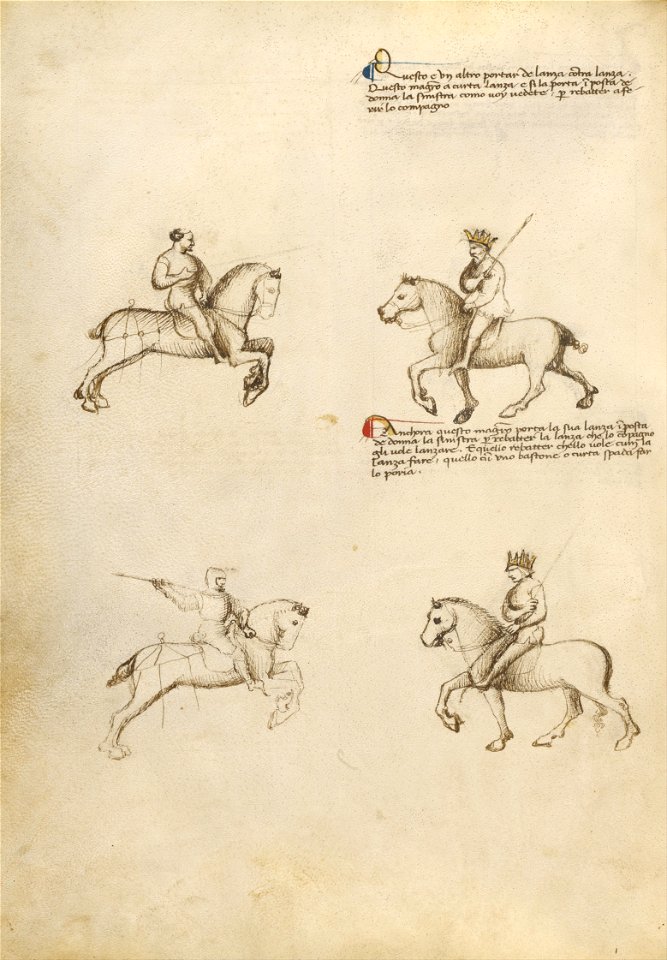 Questo e un altro portar de lanza contra lanza.
Questo magro a curta lanza e si la porta in posta de
donna la sinistra como voy vedete, per rebatter a fe
rire lo compagno
Anchora questo magro porta la sua lanza in posta
de donna la sinistra per rebatter la lanza che lo compagno
gli vole lanzare. E quello rebatter chello vole cum la
lanza fare, quello cum uno bastone o curta spada far
lo poria.